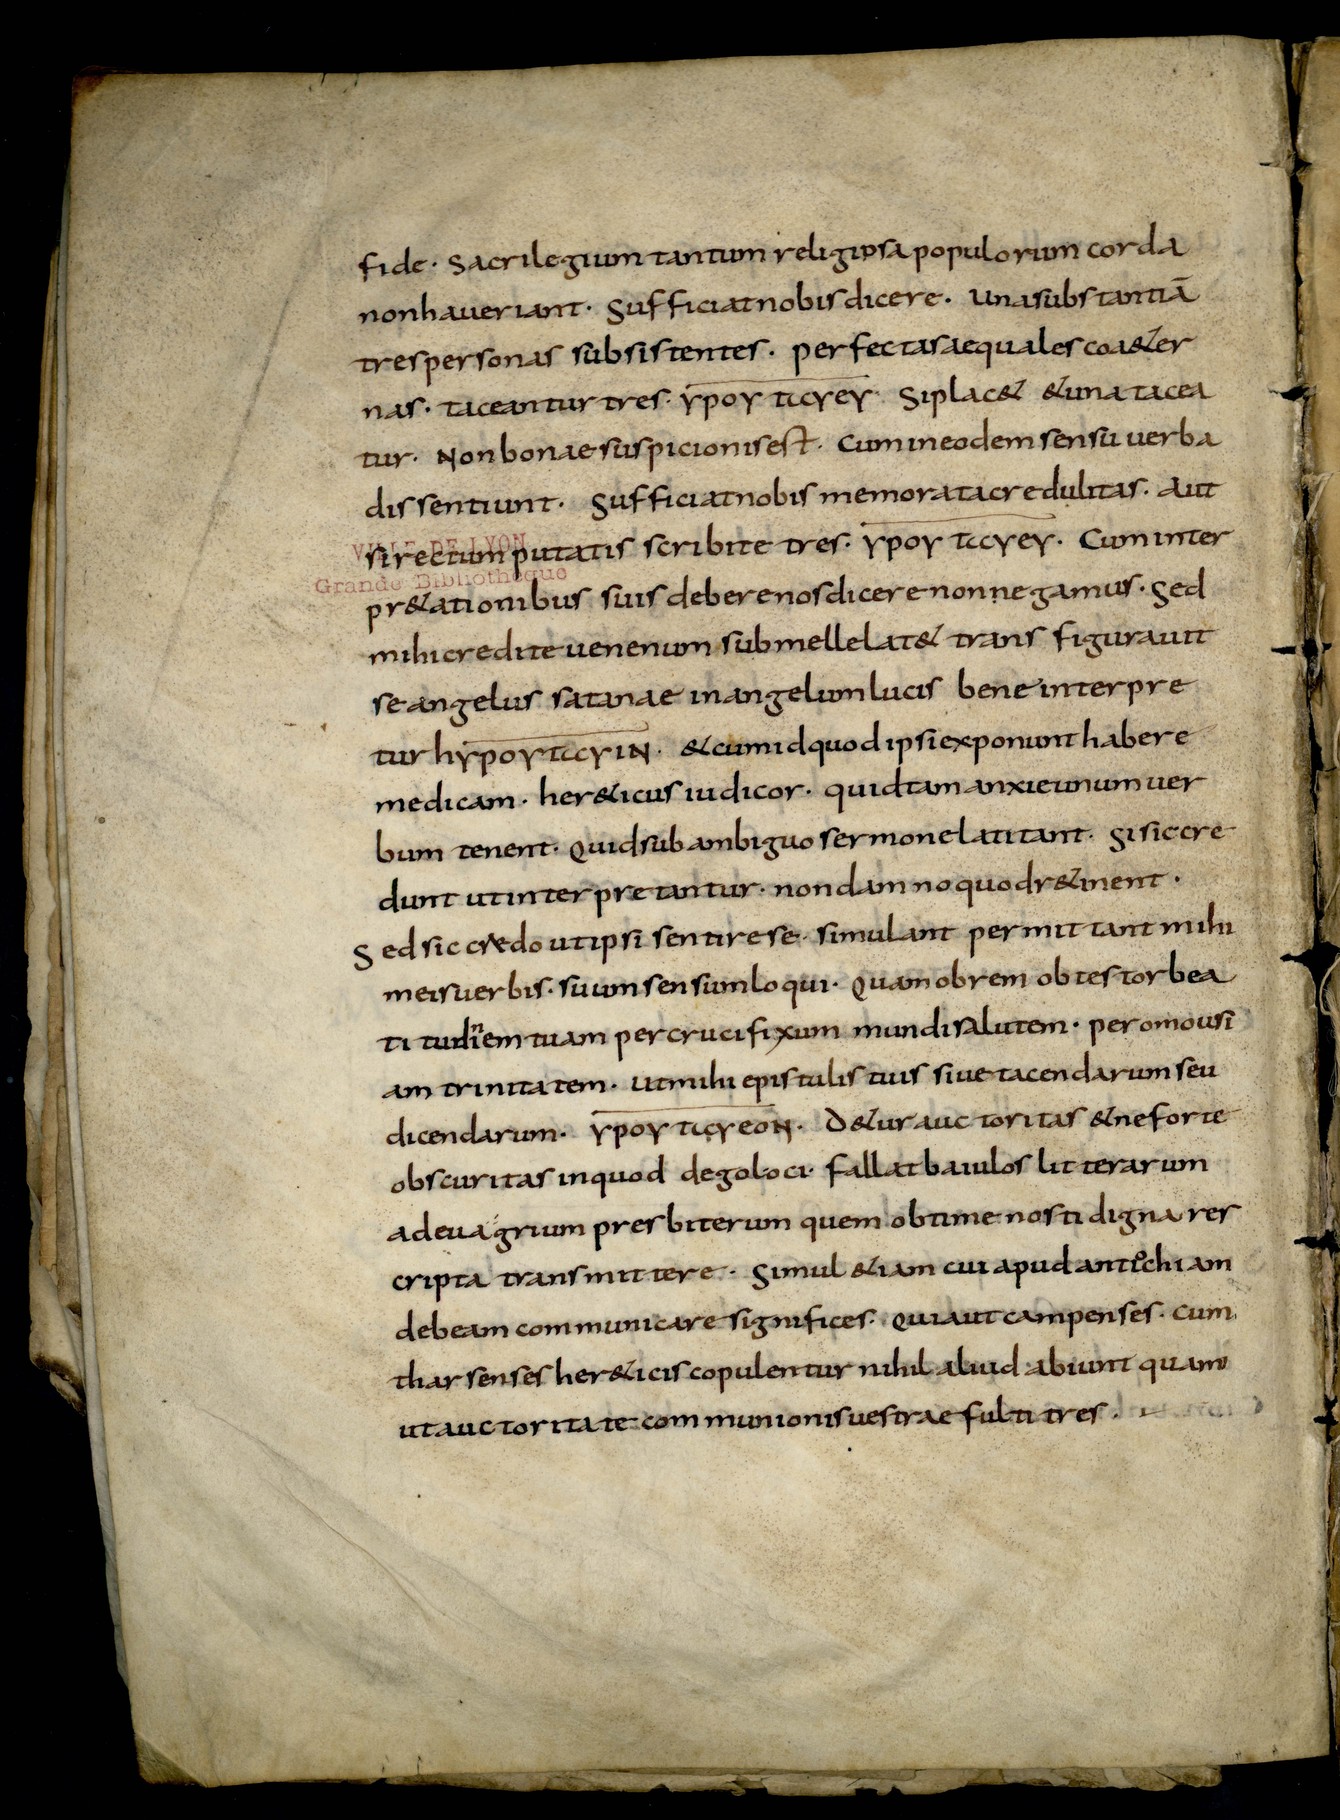 fide. Sacrilegium tantum religiosa populorum corda
non haueriant. Sufficiat nobis dicere. una substantiā
tres personas subsistentes. perfectas aequales coa&er
nas. taceantur tres. ypoy ticyey. Si plac& & una tacea
tur. Non bonae suspicionis est. Cum in eodem sensu uerba
dissentiunt. Sufficiat nobis memorata credulitas. Aut
VILLE DE LYON
si rectum putatis scribite tres. ypoy ticyey. Cum inter
Grande Bibliothèque
pr&ationibus suis debere nos dicere non negamus. Sed
mihi credite uenenum sub melle lat& transfigurauit
se angelus satanae in angelum lucis bene interpre
tur hypoy ticyiN. & cum id quod ipsi exponunt habere
me dicam. her&icus iudicor. quid tam anxie unum uer
bum tenent. Quid sub ambiguo sermone latitant. Si sic cre
dunt ut interpretantur. non damno quod r&inent.
Sed sic credo ut ipsi sentire se. simulant permittant mihi
meis uerbis. suum sensum loqui. Quamobrem obtestor bea
titudinem tuam per crucifixum mundi salutem. per omousi
am trinitatem. ut mihi epistulis tuis siue tacendarum seu
dicendarum. ypoy ticyeoN. D&ur auctoritas & ne forte
obscuritas in quod dego loci. fallat baiulos litterarum
ad euagrium presbiterum quem obtime nosti digna res
cripta transmittere. Simul &iam cui apud antiochiam
debeam communicare significes. Qui aut campenses. cum
tharsenses her&icis copulentur nihil aliud abiunt quam
ut auctoritate communionis uestrae fulti tres.